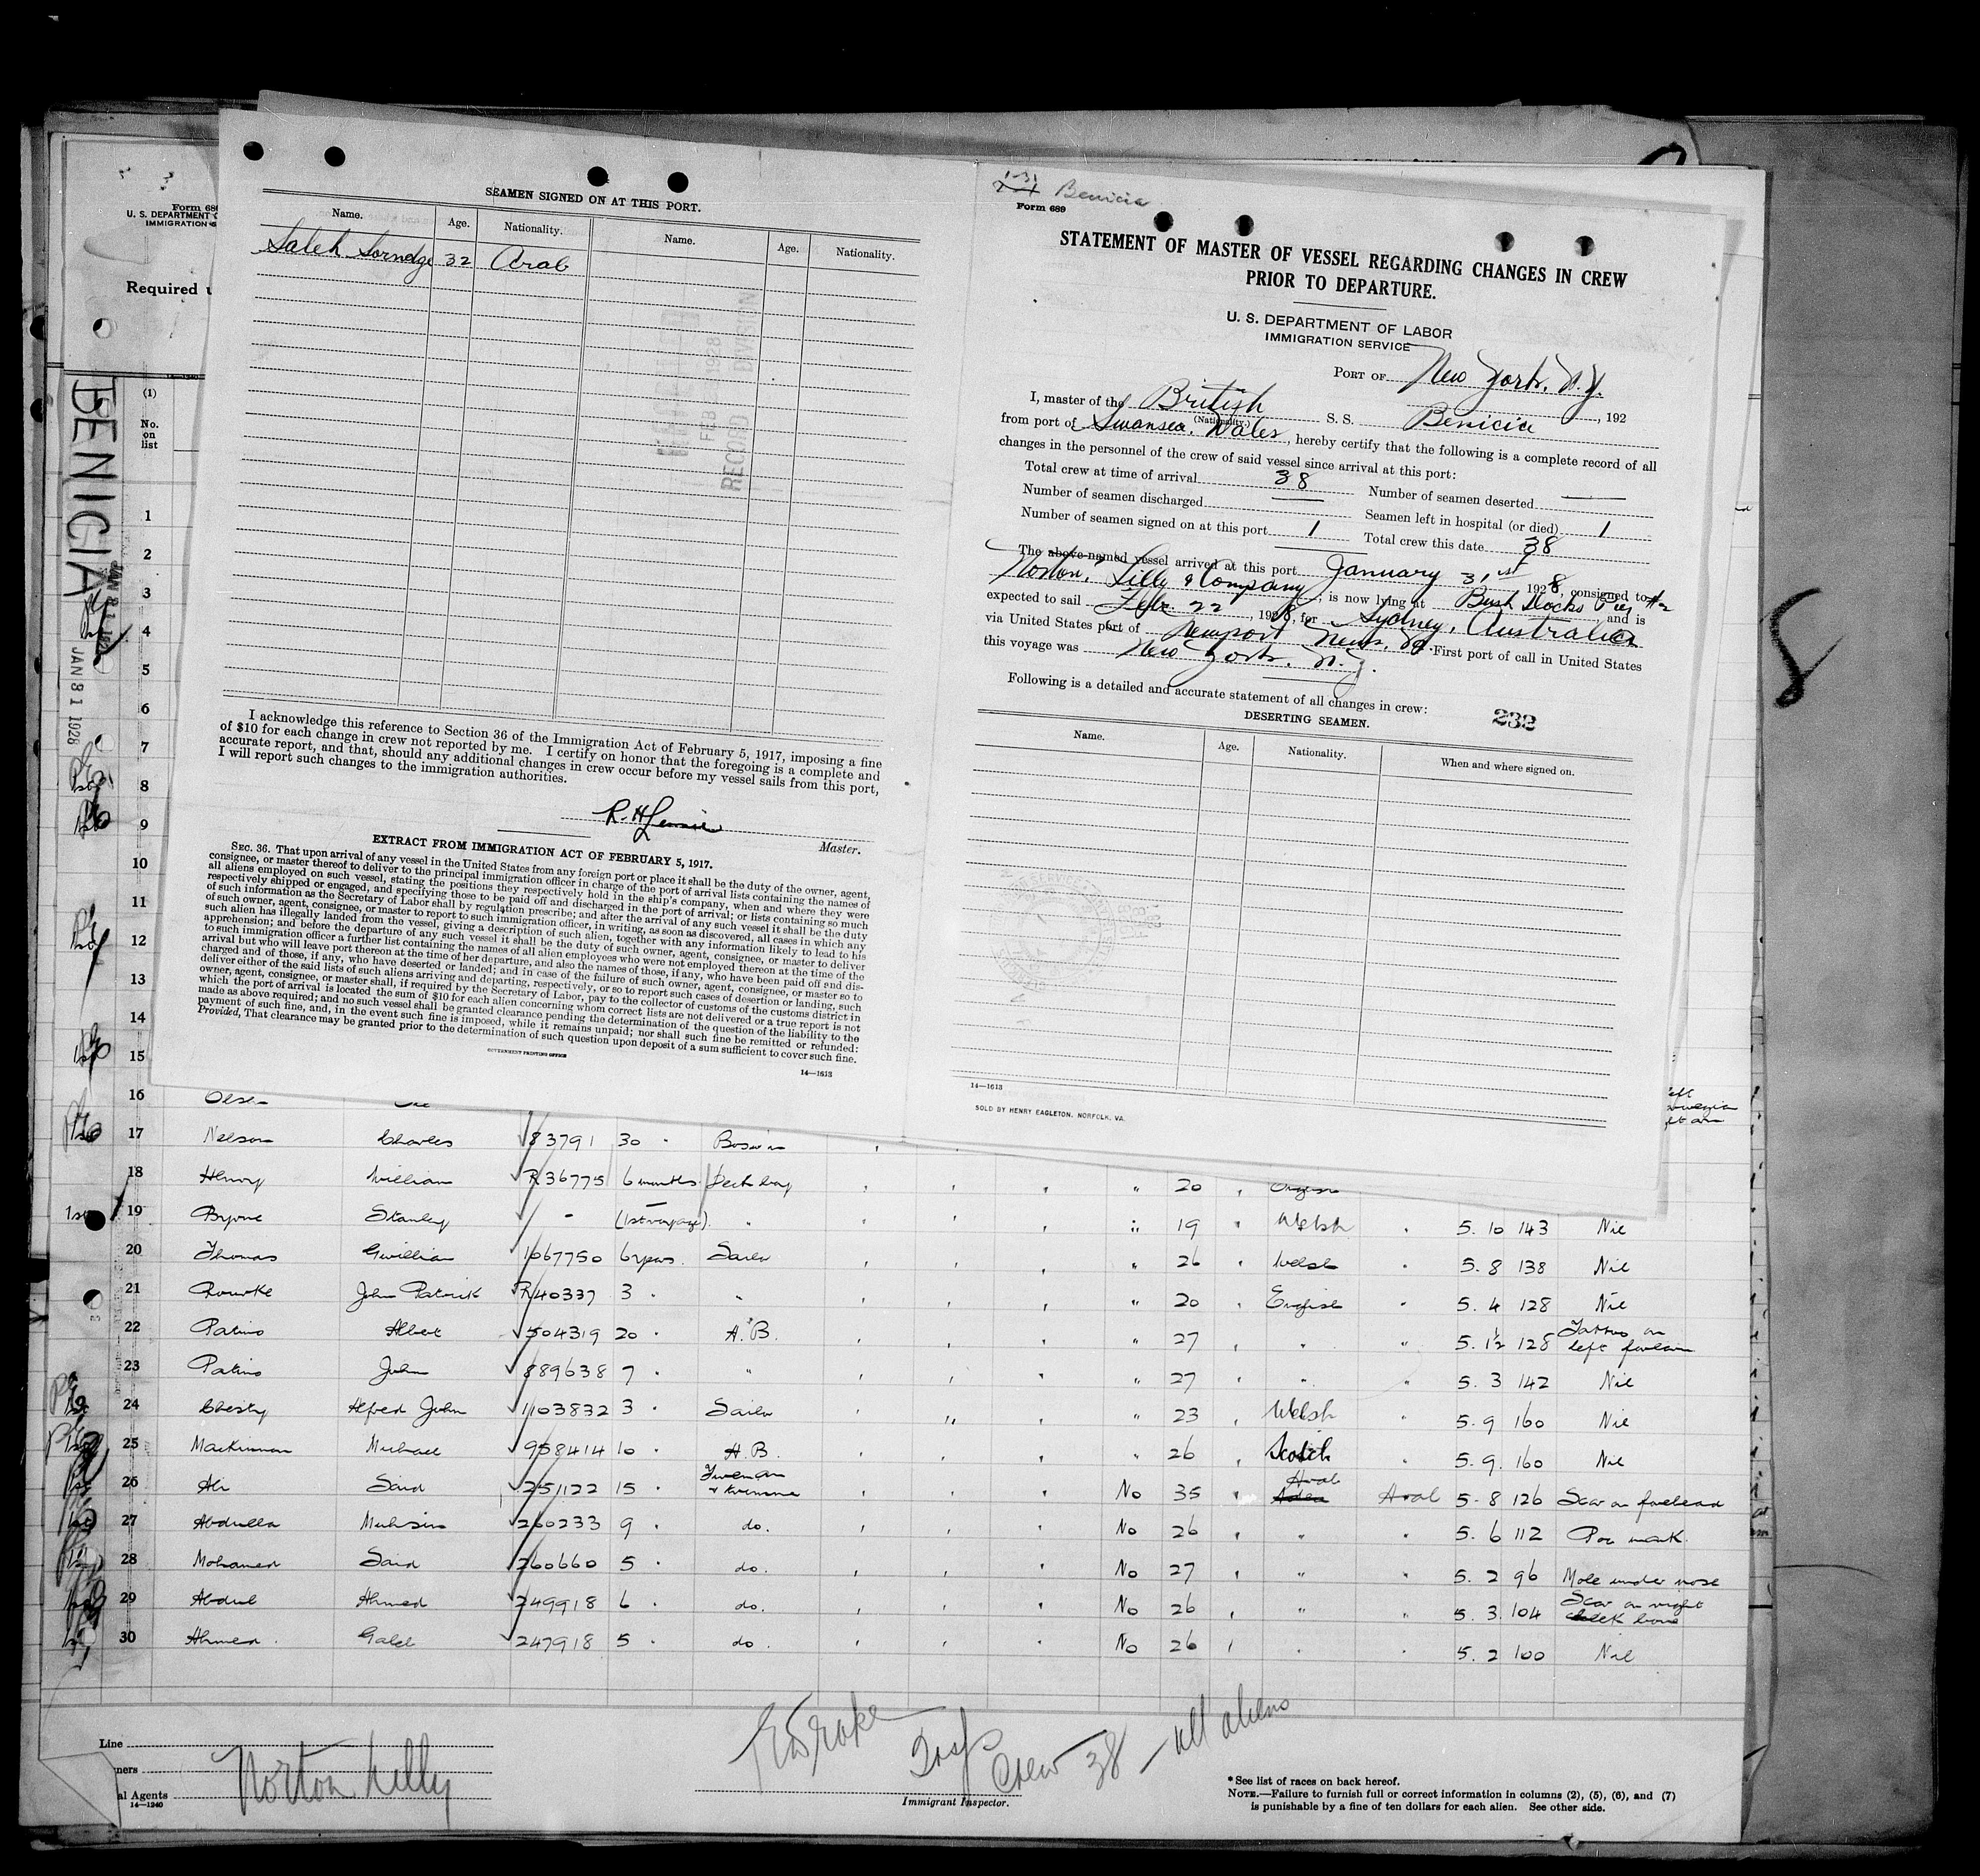 SEAMEN SIGNED ON AT THIS PORT.
Name. Age. Nationality. Name. Age. Nationality.
Saleh 32 Arab
I acknowledge this reference to Section 36 of the Immigration Act of February 5, 1917, imposing a fine
of $10 for each change in crew not reported by me. I certify on honor that the foregoing is a complete and
accurate report, and that, should any additional changes in crew occur before my vessel sails from this port,
I will report such changes to the immigration authorities.
R. H.
Master.
EXTRACT FROM IMMIGRATION ACT OF FEBRUARY 5, 1917.
SEC. 36. That upon arrival of any vessel in the United States from any foreign port or place it shall be the duty of the owner, agent,
consignee, or master thereof to deliver to the principal immigration officer in charge of the port of arrival lists containing the names of
all aliens employed on such vessel, stating the positions they respectively hold in the ship's company, when and where they were
respectively shipped or engaged, and specifying those to be paid off and discharged in the port of arrival; or lists containing so much
of such information as the Secretary of Labor shall by regulation prescribe; and after the arrival of any such vessel it shall be the duty
of such owner, agent, consignee, or master to report to such immigration officer, in writing, as soon as discovered, all cases in which any
such alien has illegally landed from the vessel, giving a description of such alien, together with any information likely to lead to his
apprehension; and before the departure of any such vessel it shall be the duty of such owner, agent, consignee, or master to deliver
to such immigration officer a further list containing the names of all alien employees who were not employed thereon at the time of the
arrival but who will leave port thereon at the time of her departure, and also the names of those, if any, who have been paid off and dis-
charged and of those, if any, who have deserted or landed; and in case of the failure of such owner, agent, consignee, or master so to
deliver either of the said lists of such aliens arriving and departing, respectively, or so to report such cases of desertion or landing, such
owner, agent, consignee, or master shall, if required by the Secretary of Labor, pay to the collector of customs of the customs district in
which the port of arrival is located the sum of $10 for each alien concerning whom correct lists are not delivered or a true report is not
made as above required; and no such vessel shall be granted clearance pending the determination of the question of the liability to the
payment of such fine, and, in the event such fine is imposed, while it remains unpaid; nor shall such fine be remitted or refunded:
Provided, That clearance may be granted prior to the determination of such question upon deposit of a sum sufficient to cover such fine.
GOVERNMENT PRINTING OFFICE
14—1613
1-31 Benicia
Form 689
STATEMENT OF MASTER OF VESSEL REGARDING CHANGES IN CREW
PRIOR TO DEPARTURE.
U. S. DEPARTMENT OF LABOR
IMMIGRATION SERVICE
PORT OF New York, N.Y.
, 192
I, master of the British S. S. Benicia
(Nationality.)
from port of Swansea, Wales, hereby certify that the following is a complete record of all
changes in the personnel of the crew of said vessel since arrival at this port:
Total crew at time of arrival 38 Number of seamen deserted —
Number of seamen discharged — Seamen left in hospital (or died) 1
Number of seamen signed on at this port 1 Total crew this date 38
The above-named vessel arrived at this port January 31st 1928, consigned to
Norton, Lilly & Company, is now lying at Bush Docks Pier #2, and is
expected to sail Feb. 22, 1928, for Sydney, Australia
via United States port of Newport News, Va. First port of call in United States
this voyage was New York, N.Y.
Following is a detailed and accurate statement of all changes in crew:
232
DESERTING SEAMEN.
Name. Age. Nationality. When and where signed on.
14—1613
SOLD BY HENRY EAGLETON, NORFOLK, VA.
8
Form 689
U. S. DEPARTMENT
IMMIGRATION
Required
BENICIA
JAN 31 1928
(1)
No.
on
list
1
2
3
4
5
6
7
8
9
10
11
12
13
14
15
16 Olsen
17 Nelson Charles 83791 30 Bosun
18 Henry William R36775 6 months Deck boy 20 English
19 Byrne Stanley - (1st voyage) " 19 Welsh 5. 10 143 Nil
20 Thomas Gwilliam 1067750 6 years Sailor " 26 Welsh 5. 8 138 Nil
21 Rourke John Patrick R40337 3 " " 20 English 5. 4 128 Nil
22 Patino Albert 504319 20 A.B. " 27 " 5. 1½ 128 Tattoo on left forearm
23 Patino John 889638 7 " " 27 " 5. 3 142 Nil
24 Chesty Alfred John 1103832 3 Sailor " 23 Welsh 5. 9 160 Nil
25 MacKinnon Michael 958414 10 A.B. " 26 Scotch 5. 9. 160 Nil
26 Ali Said 251122 15 Fireman & trimmer No 35 Arab Arab 5. 8 126 Scar on forehead
27 Abdulla Muhsin 260233 9 do. No 26 " " 5. 6 112 Pox mark.
28 Mohamed Said 260660 5 do. No 27 " " 5. 2 96 Mole under nose
29 Abdul Ahmed 249918 6 do. No 26 " " 5. 3. 104 Scar on right cheek bone
30 Ahmed Galel 247918 5 do. No 26 " " 5. 2 100 Nil
Line
ners
al Agents Norton Lilly
14—1240
Insp
Crew 38 — all aliens
Immigrant Inspector.
* See list of races on back hereof.
NOTE.—Failure to furnish full or correct information in columns (2), (5), (6), and (7)
is punishable by a fine of ten dollars for each alien. See other side.